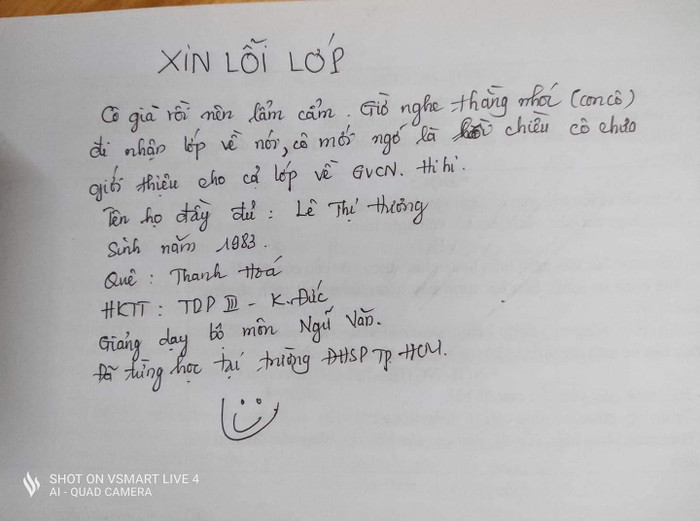 XIN LỖI LỚP
Cô già rồi nên lẩm cẩm. Giờ nghe thằng nhóc (con cô)
đi nhận lớp về nói, cô mới ngớ là chiều cô chưa
giới thiệu cho cả lớp về GVCN. Hihi.
Tên họ đầy đủ : Lê Thị Thương
Sinh năm 1983.
Quê : Thanh Hoá
HKTT : TDP III - K. Đức
Giảng dạy bộ môn Ngữ Văn.
Đã từng học tại trường ĐHSP Tp. HCM.
SHOT ON VSMART LIVE 4
AI - QUAD CAMERA